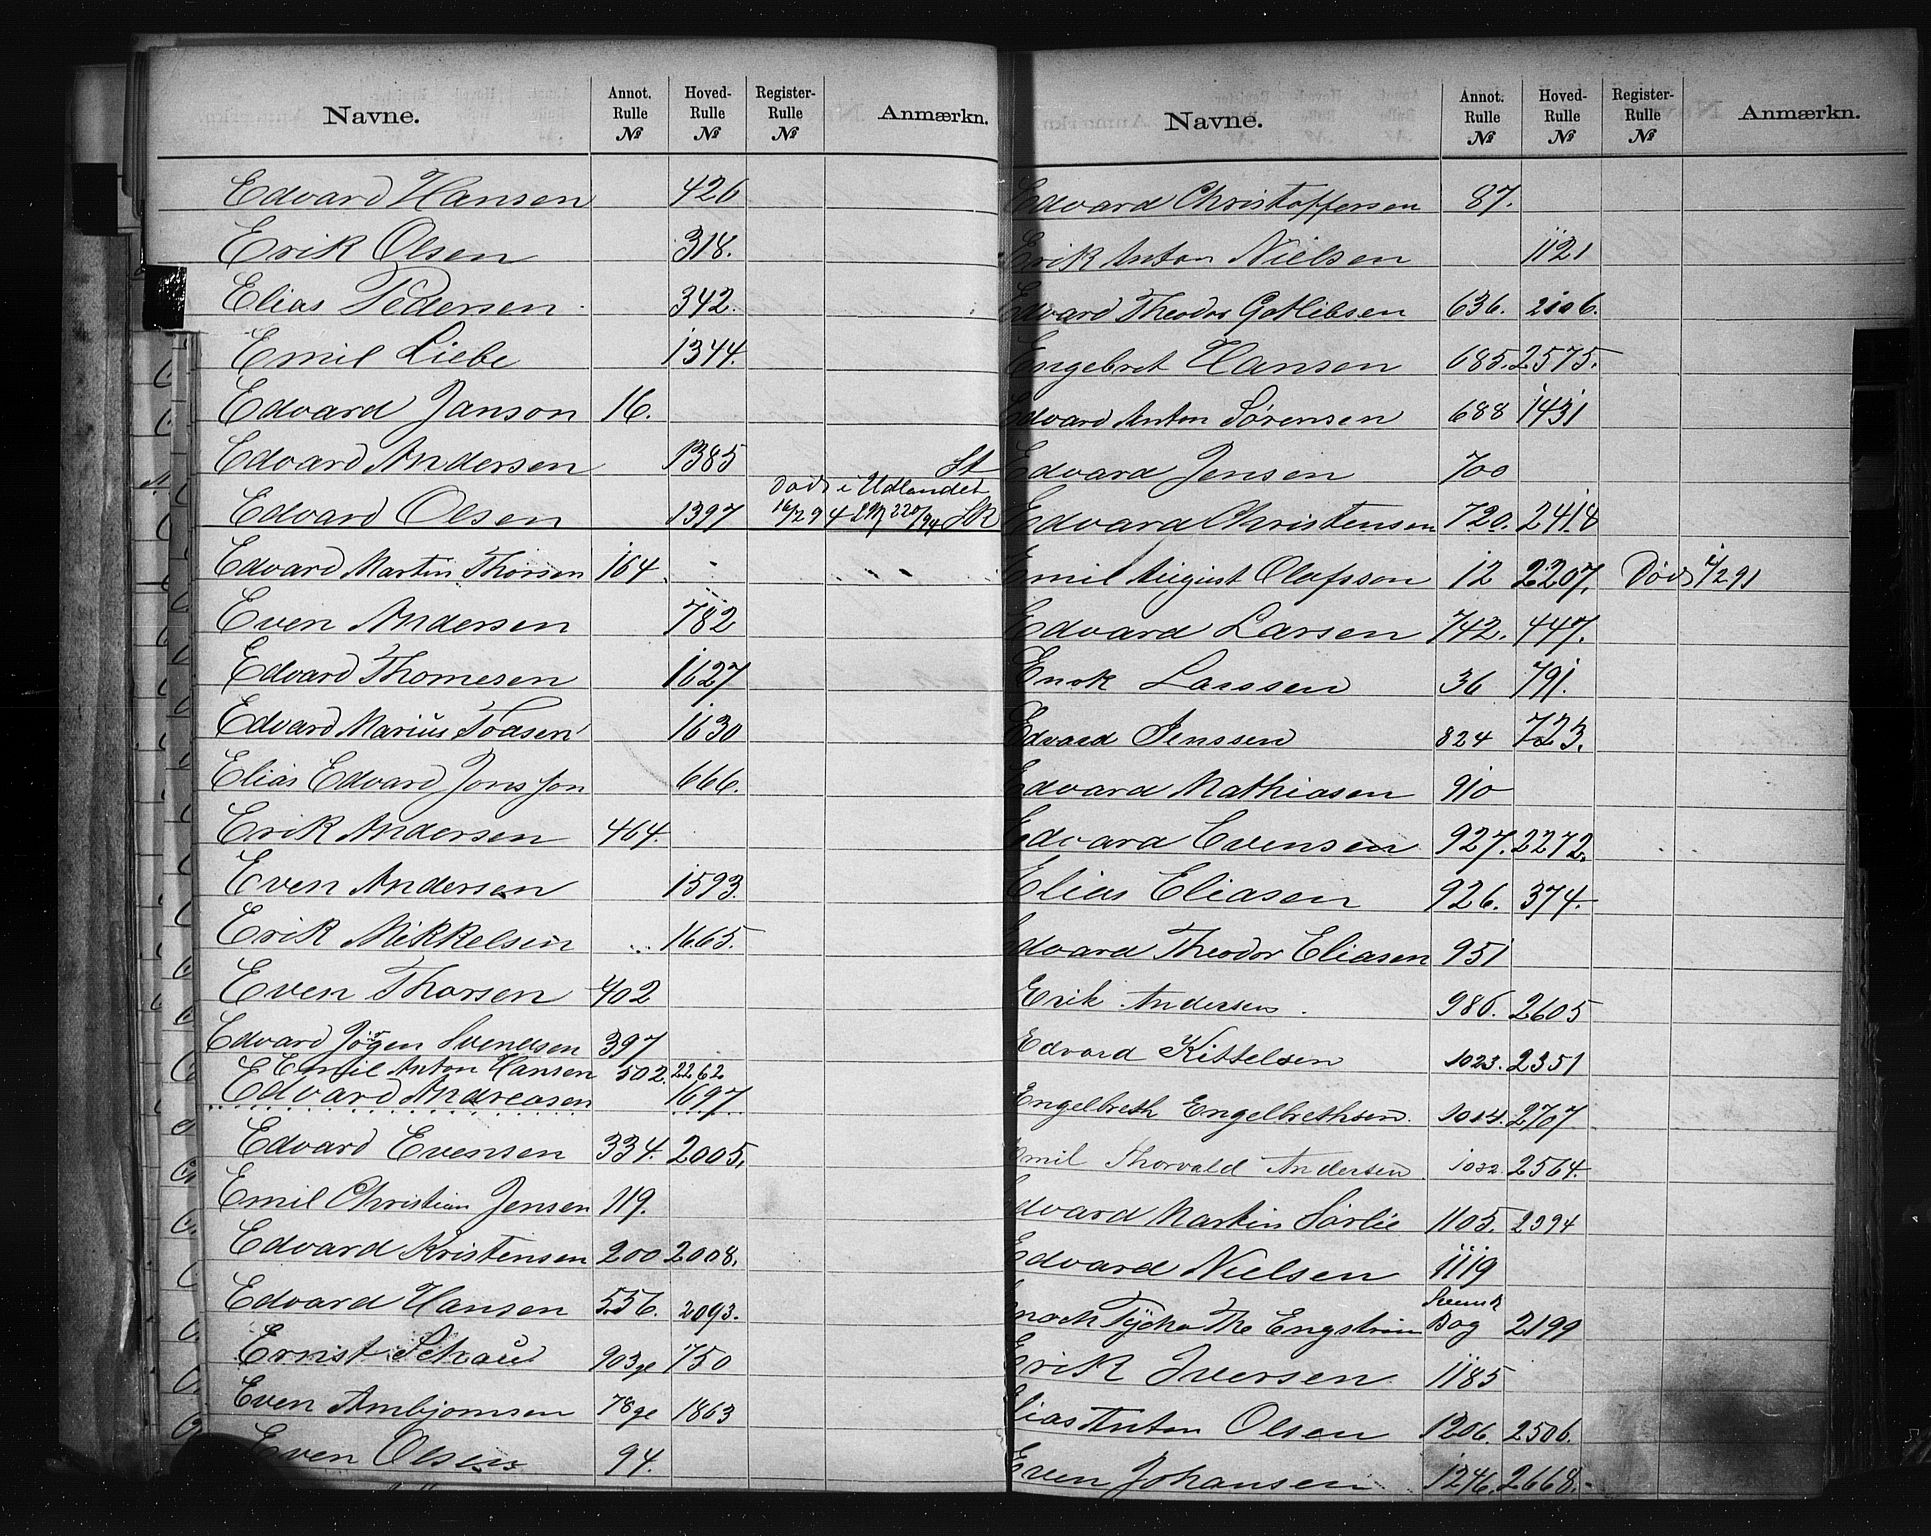 Navne. Annot. Rulle № Hoved- Rulle № Register- Rulle № Anmærkn.
Edvard Hansen 426
Erik Olsen 318.
Elias Pedersen 342.
Emil Liebe 1344.
Edvard Janson 16.
Edvard Andersen 1385 St
Død i Udlandet
Edvard Olsen 1397 16/2 94 SR
Edvard Martin Thorsen 164.
Even Andersen 782
Edvard Thomesen 1627
Edvard Marius Toasen 1630
Elias Edvard Jonsson 666.
Erik Andersen 464.
Even Andersen 1593.
Erik Mikkelsen 1665.
Even Thorsen 402
Edvard Jørgen Svendsen 397
Emil Anton Hansen 502. 2262
Edvard Andreasen 1697
Edvard Evensen 334. 2005.
Emil Christian Jensen 119.
Edvard Kristensen 200 2008.
Edvard Hansen 556. 2093.
Ernst Schau 903 ge 750
Even Ambjornsen 78 ge 1863
Even Olsen 94.
Navne. Annot. Rulle № Hoved- Rulle № Register- Rulle № Anmærkn.
Edvard Christoffersen 87.
Erik Anton Nielsen 1121
Edvard Theodor Gotlibsen 636. 2106.
Engebret Hansen 685. 2575.
Edvard Anton Sørensen 688 1431
Edvard Jensen 700
Edvard Christensen 720. 2418
Emil August Olafsson 12 2207. Død 1/2 91
Edvard Larsen 742. 447.
Enok Larssen 36 791.
Edvard Jenssen 824 723.
Edvard Mathiasen 910
Edvard Evensen 927. 2272.
Elias Eliasen 926. 374.
Edvard Theodor Eliasen 951
Erik Andersen 986. 2605
Edvard Kittelsen 1023. 2351
Engelbreth Engelbrethsen. 1014. 2707
Emil Thorvald Andersen 1032. 2564.
Edvard Martin Sørlie 1105. 2394
Edvard Nielsen 1119
Svensk
Enoch Tycho The Engström Bog 2199
Erik Iversen 1185
Elias Anton Olsen 1206. 2506.
Even Johansen 1246. 2668.